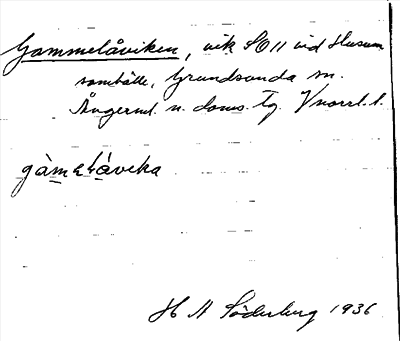 Gammelåviken, vik SO 11 vid Husum
samhälle, Grundsunda sn.
Ångerml. n. doms. tg. Vnorrl. l.
gàmelǻvika
H N Söderberg 1936